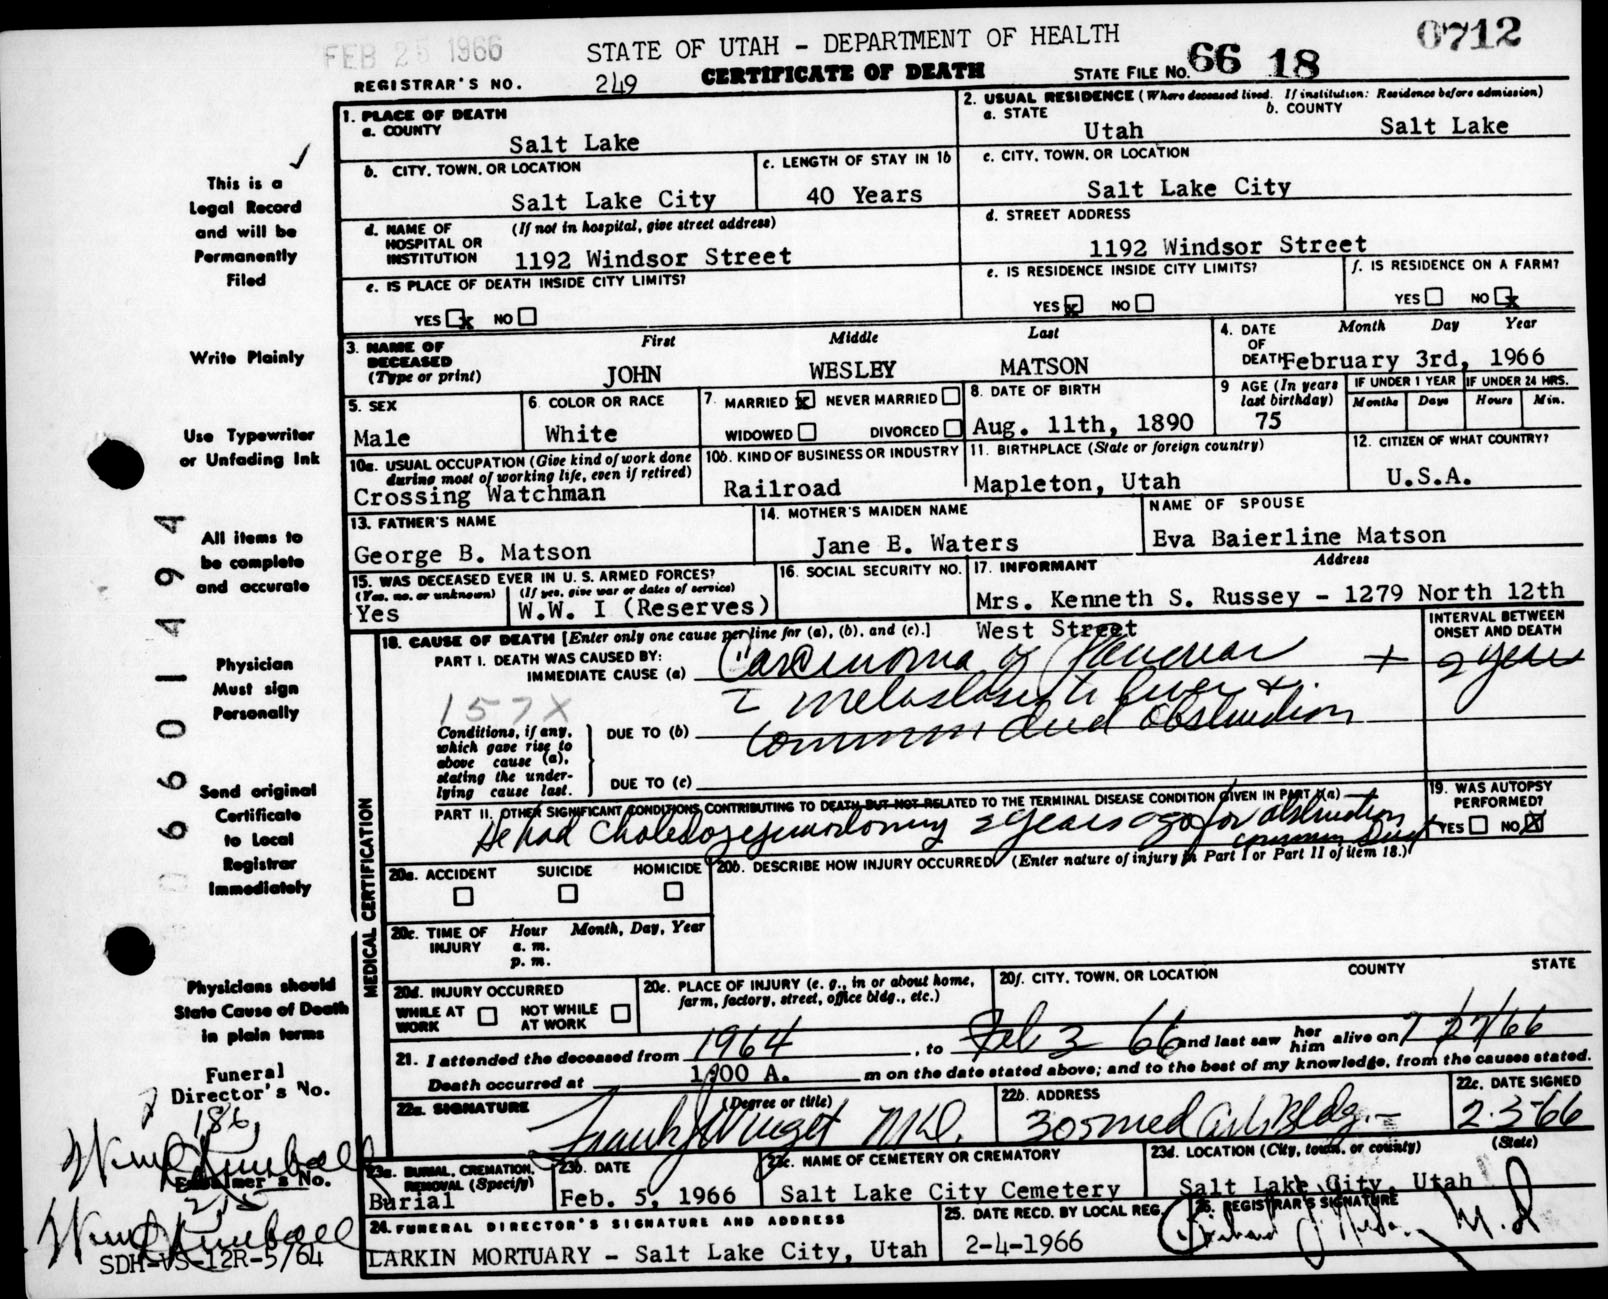 FEB 25 1966
STATE OF UTAH - DEPARTMENT OF HEALTH
0712
REGISTRAR'S NO. 249
CERTIFICATE OF DEATH
STATE FILE NO. 66 18
1. PLACE OF DEATH
a. COUNTY
Salt Lake
2. USUAL RESIDENCE (Where deceased lived. If institution: Residence before admission)
a. STATE
Utah
b. COUNTY
Salt Lake
b. CITY, TOWN, OR LOCATION
Salt Lake City
c. LENGTH OF STAY IN 1b
40 Years
c. CITY, TOWN, OR LOCATION
Salt Lake City
d. NAME OF HOSPITAL OR INSTITUTION
(If not in hospital, give street address)
1192 Windsor Street
d. STREET ADDRESS
1192 Windsor Street
e. IS PLACE OF DEATH INSIDE CITY LIMITS?
YES x NO
e. IS RESIDENCE INSIDE CITY LIMITS?
YES x NO
f. IS RESIDENCE ON A FARM?
YES NO x
3. NAME OF DECEASED (Type or print)
First Middle Last
JOHN WESLEY MATSON
4. DATE OF DEATH
Month Day Year
February 3rd, 1966
5. SEX
Male
6. COLOR OR RACE
White
7. MARRIED x NEVER MARRIED
WIDOWED DIVORCED
8. DATE OF BIRTH
Aug. 11th, 1890
9 AGE (In years last birthday)
75
IF UNDER 1 YEAR
Months Days
IF UNDER 24 HRS.
Hours Min.
10a. USUAL OCCUPATION (Give kind of work done during most of working life, even if retired)
Crossing Watchman
10b. KIND OF BUSINESS OR INDUSTRY
Railroad
11. BIRTHPLACE (State or foreign country)
Mapleton, Utah
12. CITIZEN OF WHAT COUNTRY?
U.S.A.
13. FATHER'S NAME
George B. Matson
14. MOTHER'S MAIDEN NAME
Jane E. Waters
NAME OF SPOUSE
Eva Baierline Matson
15. WAS DECEASED EVER IN U. S. ARMED FORCES?
(Yes, no, or unknown) (If yes, give war or dates of service)
Yes W.W. I (Reserves)
16. SOCIAL SECURITY NO.
17. INFORMANT Address
Mrs. Kenneth S. Russey - 1279 North 12th
West Street
18. CAUSE OF DEATH [Enter only one cause per line for (a), (b), and (c).]
INTERVAL BETWEEN ONSET AND DEATH
PART I. DEATH WAS CAUSED BY:
IMMEDIATE CAUSE (a) Carcinoma of Pancreas + 2 years
metastases to liver &
157X
Conditions, if any, which gave rise to above cause (a), stating the underlying cause last.
DUE TO (b) common duct obstruction
DUE TO (c)
PART II. OTHER SIGNIFICANT CONDITIONS CONTRIBUTING TO DEATH BUT NOT RELATED TO THE TERMINAL DISEASE CONDITION GIVEN IN PART I(a)
He had 2 years ago for obstruction
common Duct
19. WAS AUTOPSY PERFORMED?
YES NO X
20a. ACCIDENT SUICIDE HOMICIDE
20b. DESCRIBE HOW INJURY OCCURRED (Enter nature of injury in Part I or Part II of item 18.)
20c. TIME OF INJURY
Hour Month, Day, Year
a. m.
p. m.
20d. INJURY OCCURRED
WHILE AT WORK NOT WHILE AT WORK
20e. PLACE OF INJURY (e. g., in or about home, farm, factory, street, office bldg., etc.)
20f. CITY, TOWN, OR LOCATION COUNTY STATE
21. I attended the deceased from 1964, to Feb 3 66 and last saw her him alive on 1/27/66
Death occurred at 1:00 A. m on the date stated above; and to the best of my knowledge, from the causes stated.
22a. SIGNATURE (Degree or title)
Frank J. M.D.
22b. ADDRESS
305 Med Arts Bldg.
22c. DATE SIGNED
2-3-66
23a. BURIAL, CREMATION, REMOVAL (Specify)
Burial
23b. DATE
Feb. 5, 1966
23c. NAME OF CEMETERY OR CREMATORY
Salt Lake City Cemetery
23d. LOCATION (City, town, or county) (State)
Salt Lake City, Utah
24. FUNERAL DIRECTOR'S SIGNATURE AND ADDRESS
LARKIN MORTUARY - Salt Lake City, Utah
25. DATE RECD. BY LOCAL REG.
2-4-1966
26. REGISTRAR'S SIGNATURE
M.D.
MEDICAL CERTIFICATION
This is a
Legal Record
and will be
Permanently
Filed
Write Plainly
Use Typewriter
or Unfading Ink
All items to
be complete
and accurate
Physician
Must sign
Personally
Send original
Certificate
to Local
Registrar
Immediately
Physicians should
State Cause of Death
in plain terms
Funeral
Director's No.
186
Kimball
Embalmer's No.
215
Kimball
SDH-VS-12R-5/64
066014 94